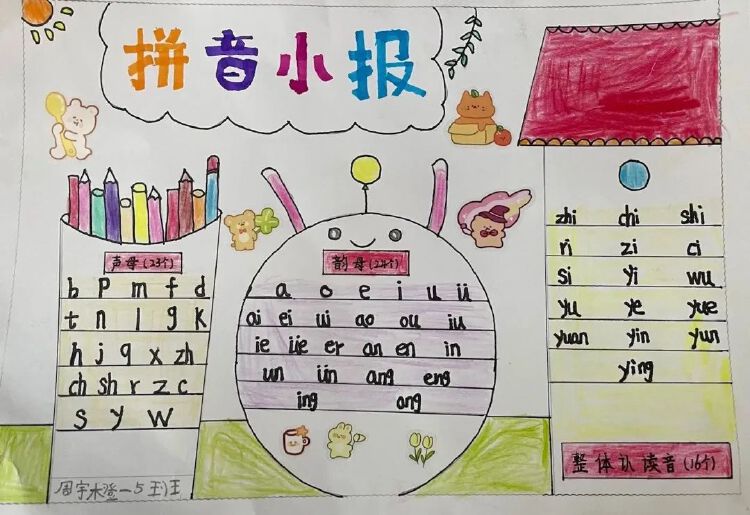 拼音小报
声母(23个)
b p m f d
t n l g k
h j q x zh
ch sh r z c
s y w
韵母(24个)
a o e i u ü
ai ei ui ao ou iu
ie üe er an en in
un ün ang eng
ing ong
zhi chi shi
ri zi ci
si yi wu
yu ye yue
yuan yin yun
ying
整体认读音(16个)
一5班